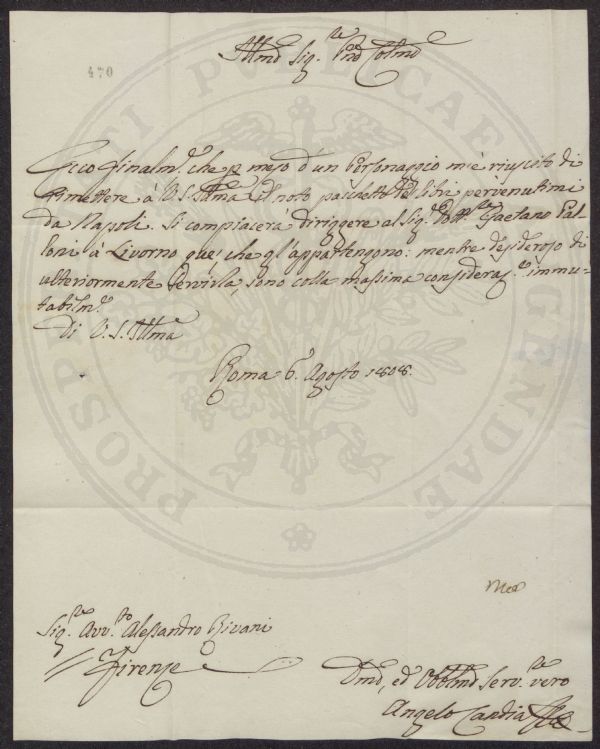 470
Illmo Sig.re Pne Colmo
Ecco finalm.e che p mezo d'un Personaggio m'è riuscito di
rimettere à V. S. Illma il noto pacchetto de libri pervenutimi
da Napoli. Si compiacerà diriggere al Sig.r Dott.re Gaetano Pal-
loni à Livorno que' che gl'appartengono: mentre desideroso di
ulteriormente servirla, sono colla massima consideraz.e immu-
tabilm.e
Di V. S. Illma
Roma 6. Agosto 1808.
Sig.re Avv.to Alessandro Rivani
Firenze
Dmo, ed Obblmo Serv.re vero
Angelo Candia
PROSPERITATI PUBLICAE AUGENDAE